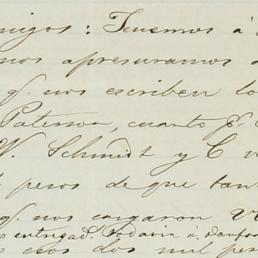 migos: Tenemos á
nos apresuramos
q. nos escriben lo
Paterson, cuanto p.
W. Schmidt y C
pesos de que tan
q. nos cargaron
entregad. todavia á Danfor
esos dos mil pes